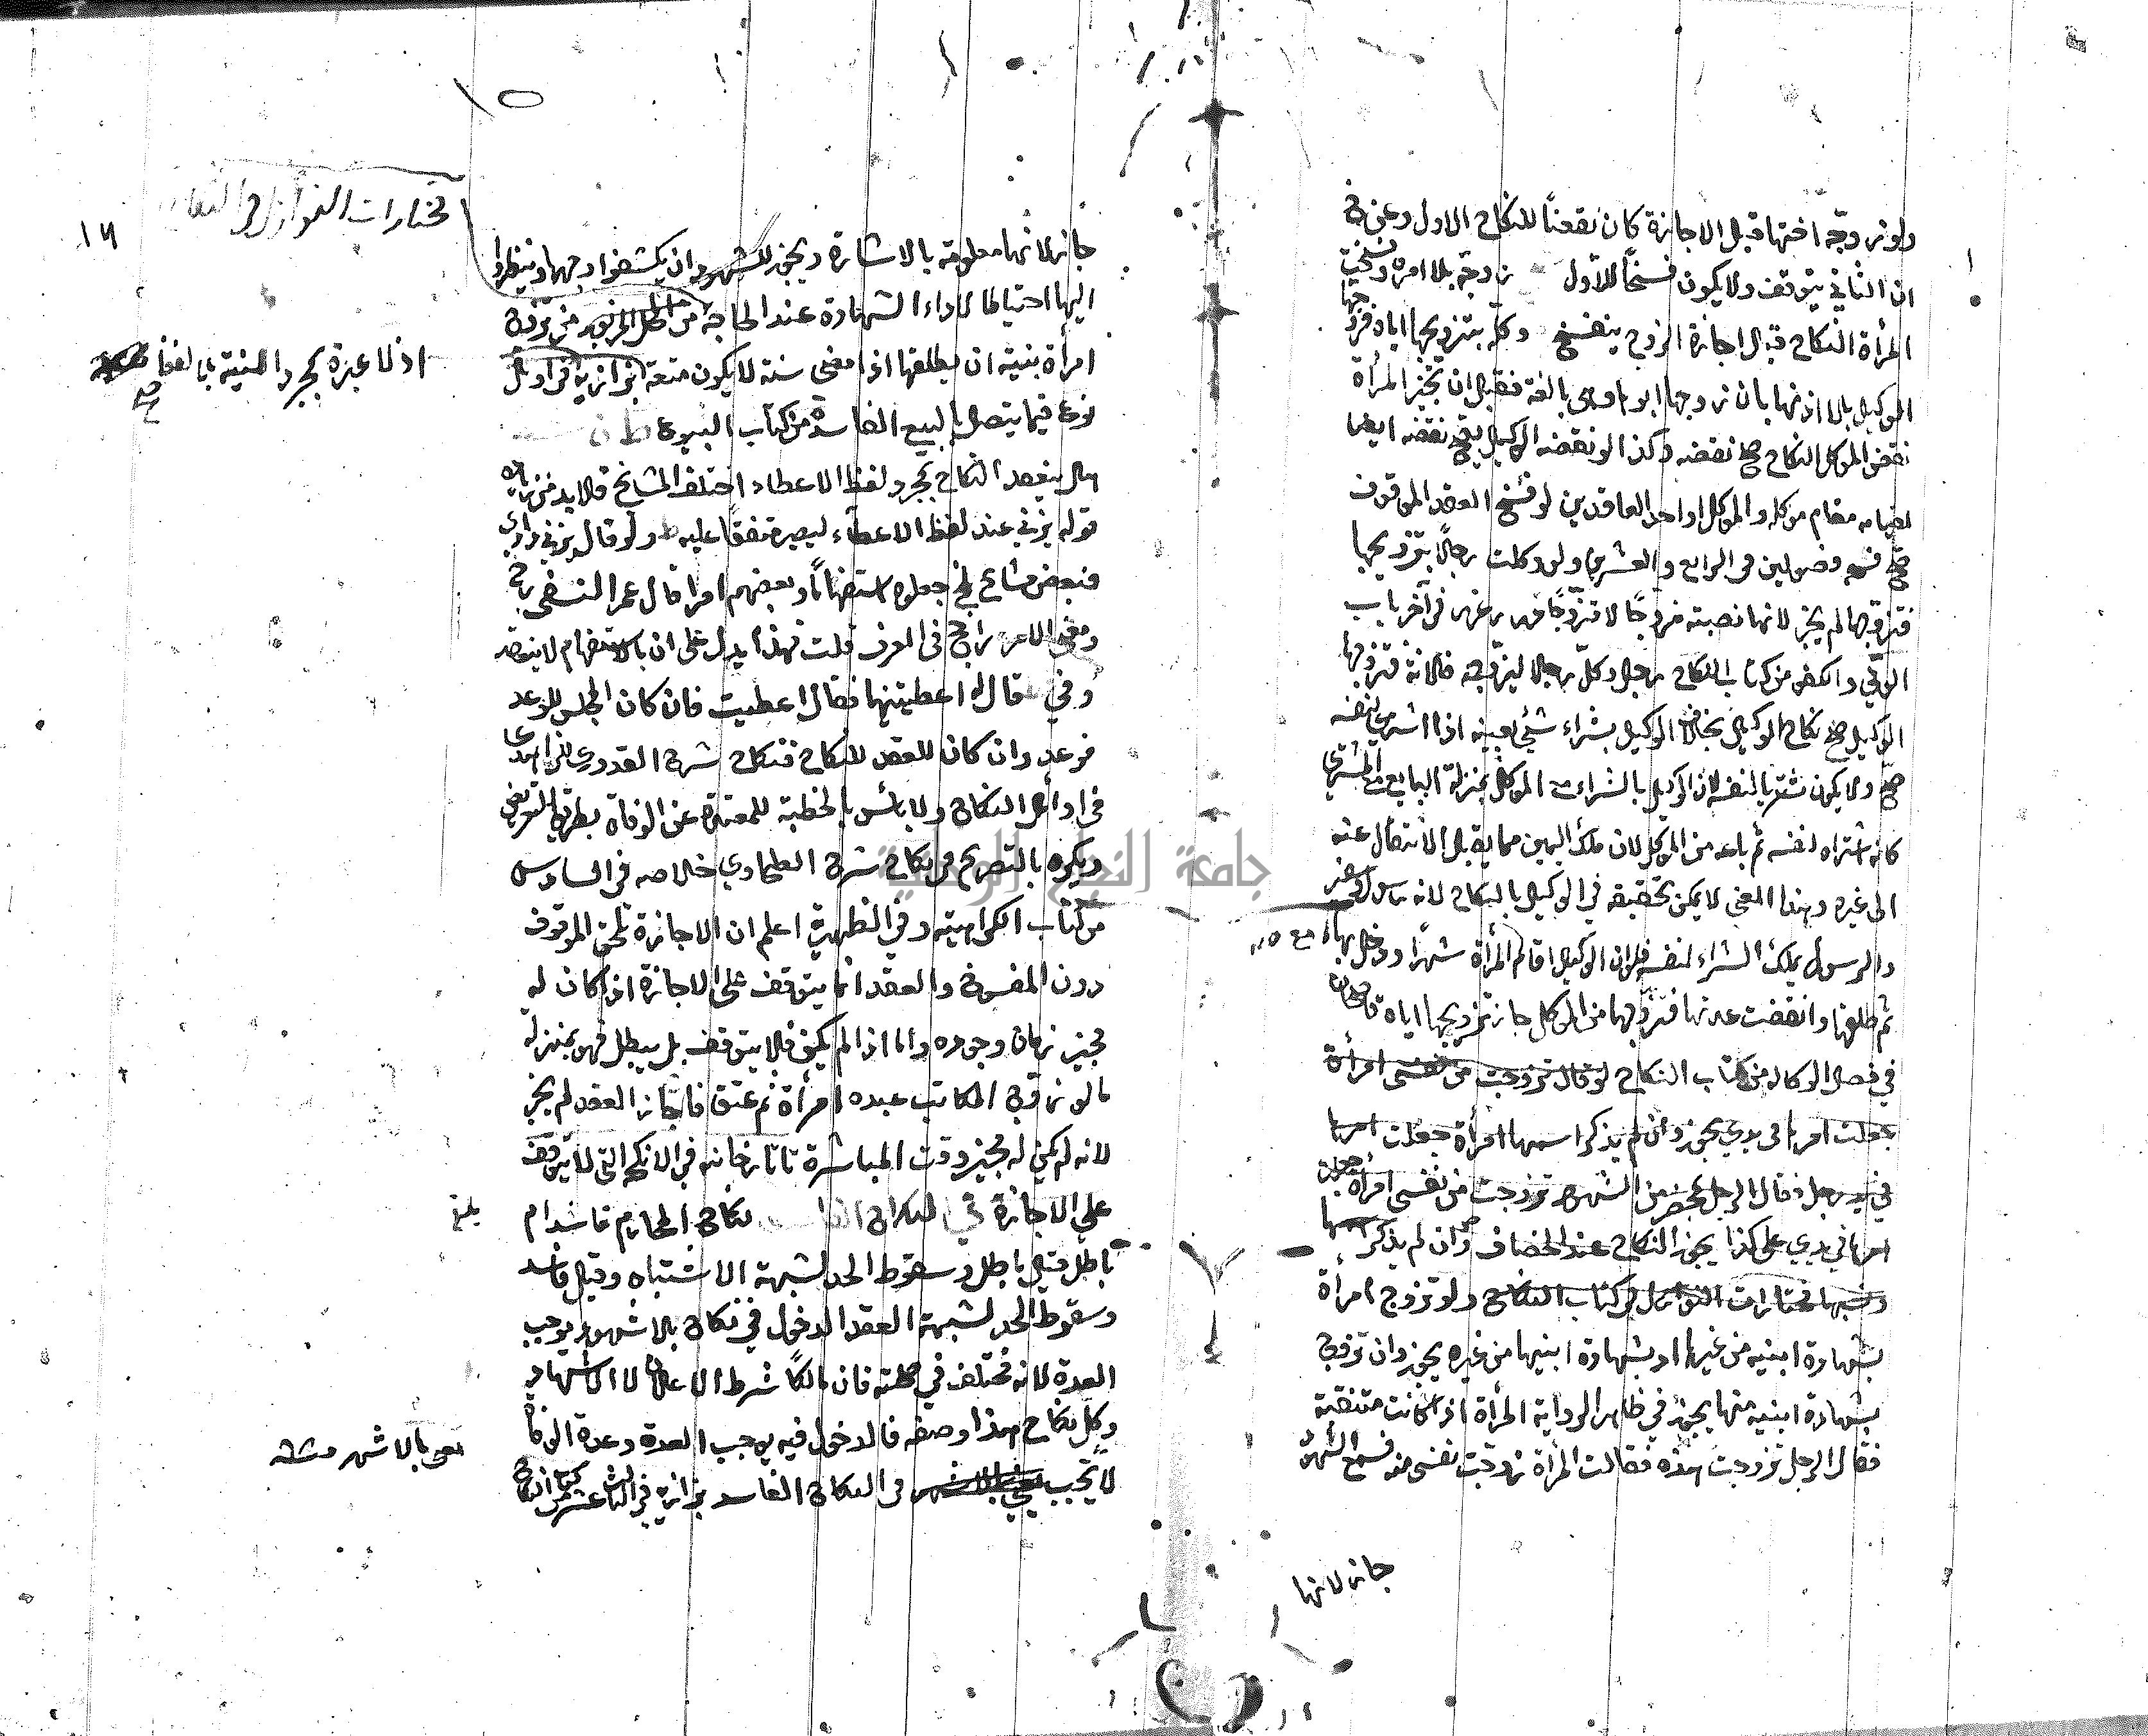 ولو زوجه اختها قبل الاجازة كان نقضاً للنكاح الاول وعن
ان الثاني يتوقف ولا يكون فسخاً للاول زوجه بلا امره وفسخت
المرأة النكاح قبل اجازة الزوج ينفسخ وكله بتزويجها اياه فزوجها
الوكيل بلا اذنها بان زوجها ابوها وهي بالغة فقبل ان تجيز المرأة
نقض الموكل النكاح صح نقضه وكذا لو نقضه الوكيل يصح نقضه ايضا
لقيامه مقام موكله والموكل او احد العاقدين لو فسخ العقد الموقوف
صح فسخه فصولين في الرابع والعشرين ولو وكلت رجلاً بتزويجها
فتزوجها لم يجز لانها نصبته مزوجاً لا متزوجاً في آخر باب
الولي والكفو من كتاب النكاح رجل وكل رجلا ليزوجه فلانة فتزوجها
الوكيل صح نكاح الوكيل بخلاف الوكيل بشراء شيء بعينه اذا اشترى لنفسه
صح ولا يكون مشتريا لنفسه لان الوكيل بالشراء مع الموكل بمنزلة البايع مع المشتري
كانه اشتراه لنفسه ثم باعه من الموكل لان ملك اليمين مما يقبل الانتقال عنه
الى غيره وهذا المعنى لا يمكن تحقيقه في الوكيل بالنكاح لانه رسول
والرسول يملك الشراء لنفسه فلو ان الوكيل اقام المرأة شهرا ودخل بها
ثم طلقها وانقضت عدتها فتزوجها من الموكل جاز تزويجها اياه قاضيخان
في فصل الوكالة من كتاب النكاح لو قال تزوجت من نفسي امرأة
جعلت امرها في يدي يجوز وان لم يذكر اسمها امرأة جعلت امرها
في يد رجل فقال الرجل بمحضر من الشهود تزوجت من نفسي امرأة جعلت
امرها في يدي على كذا يجوز النكاح عند الخصاف وان لم يذكر اسمها
ونسبها مختارات النوازل في كتاب النكاح ولو تزوج امرأة
بشهادة ابنيه من غيرها او بشهادة ابنيها من غيره يجوز وان تزوج
بشهادة ابنيه منها يجوز في ظاهر الرواية المرأة اذا كانت متنقبة
فقال الرجل تزوجت هذه فقالت المرأة زوجت نفسي منه فسمع الشهود
جاز لانها
١٥
١٦
مختارات النوازل في النكاح
جاز لانها معلومة بالاشارة ويجوز للشهود ان يكشفوا وجهها وينظروا
اليها احتياطا لاداء الشهادة عند الحاجة من المحل المزبور من تزوج
امرأة بنية ان يطلقها اذا مضى سنة لا يكون متعة بزازية في اوائل
اذ لا عبرة بمجرد النية بلا لفظ
صح
نوع فيما يتصل بالبيع الفاسد من كتاب البيوع
هل ينعقد النكاح بمجرد لفظ الاعطاء اختلف المشايخ فلا بد من زيادة
قوله بزني عند لفظ الاعطاء ليصير متفقا عليه ولو قال بزني دادي
فبعض مشايخ بلخ جعلوه استفهاماً وبعضهم امرا قال عمر النسفي رح
ومعنى الامر راجح في العرف قلت فهذا يدل على ان بالاستفهام لا ينعقد
وفي قال له اعطيتنيها فقال اعطيت فان كان المجلس للوعد
فوعد وان كان للعقد للنكاح فنكاح شرح القدوري للزاهدي
في اوائل النكاح ولا بأس بالخطبة للمعتدة عن الوفاة بطريق التعريض
ويكره بالتصريح في نكاح شرح الطحاوي خلاصه في السادس
من كتاب الكراهية وفي الظهيرية اعلم ان الاجازة تلحق الموقوف
دون المفسوخ والعقد انما يتوقف على الاجازة اذا كان له
مجيز زمان وجوده واما اذا لم يكن فلا يتوقف بل يبطل فهو بمنزلة
ما لو زوج المكاتب عبده امرأة ثم عتق فاجاز العقد لم يجز
لانه لم يكن له مجيز وقت المباشرة تاتارخانيه في الانكحة التي لا تتوقف
على الاجازة نكاح المحارم فاسد ام
باطل قيل باطل وسقوط الحد لشبهة الاشتباه وقيل فاسد
وسقوط الحد لشبهة العقد الدخول في نكاح بلا شهود يوجب
العدة لانه مختلف في صحته فان مالكاً شرط الاعلان لا الاشهاد
وكل نكاح هذا وصفه فالدخول فيه يوجب العدة وعدة الوفاة
يعني بالاشهر
لا تجب في النكاح الفاسد بزازيه في الثالث عشر من كتاب النكاح
جامعة النجاح الوطنية